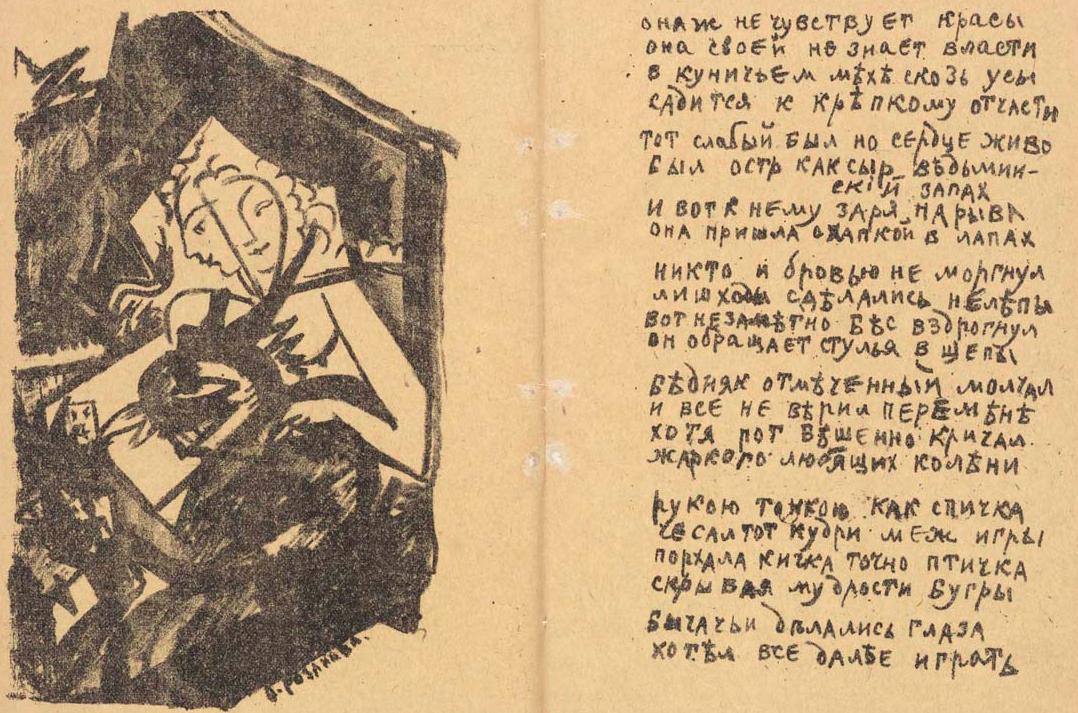 О. РОЗАНОВА.
она ж не чувствует красы
она своей не знает власти
в куничьем мѣхѣ сквозь усы
садится к крѣпкому отчасти
тот слабый был но сердце живо
был остр как сыр вѣдьмин-
ский запах
и вот к нему заря нарыва
она пришла охапкой в лапах
никто и бровью не моргнул
лишь ходы сдѣлались нелѣпы
вот незамѣтно бѣс вздрогнул
он обращает стулья в щепы
бѣдняк отмѣченный молчал
и все не вѣрил перемѣнѣ
хотя рот бѣшенно кричал
жаркого любящих колѣни
рукою тонкою как спичка
чесал тот кудри меж игры
порхала кичка точно птичка
скрывая мудрости бугры
бычачьи дѣлались глаза
хотѣл все далѣе играть